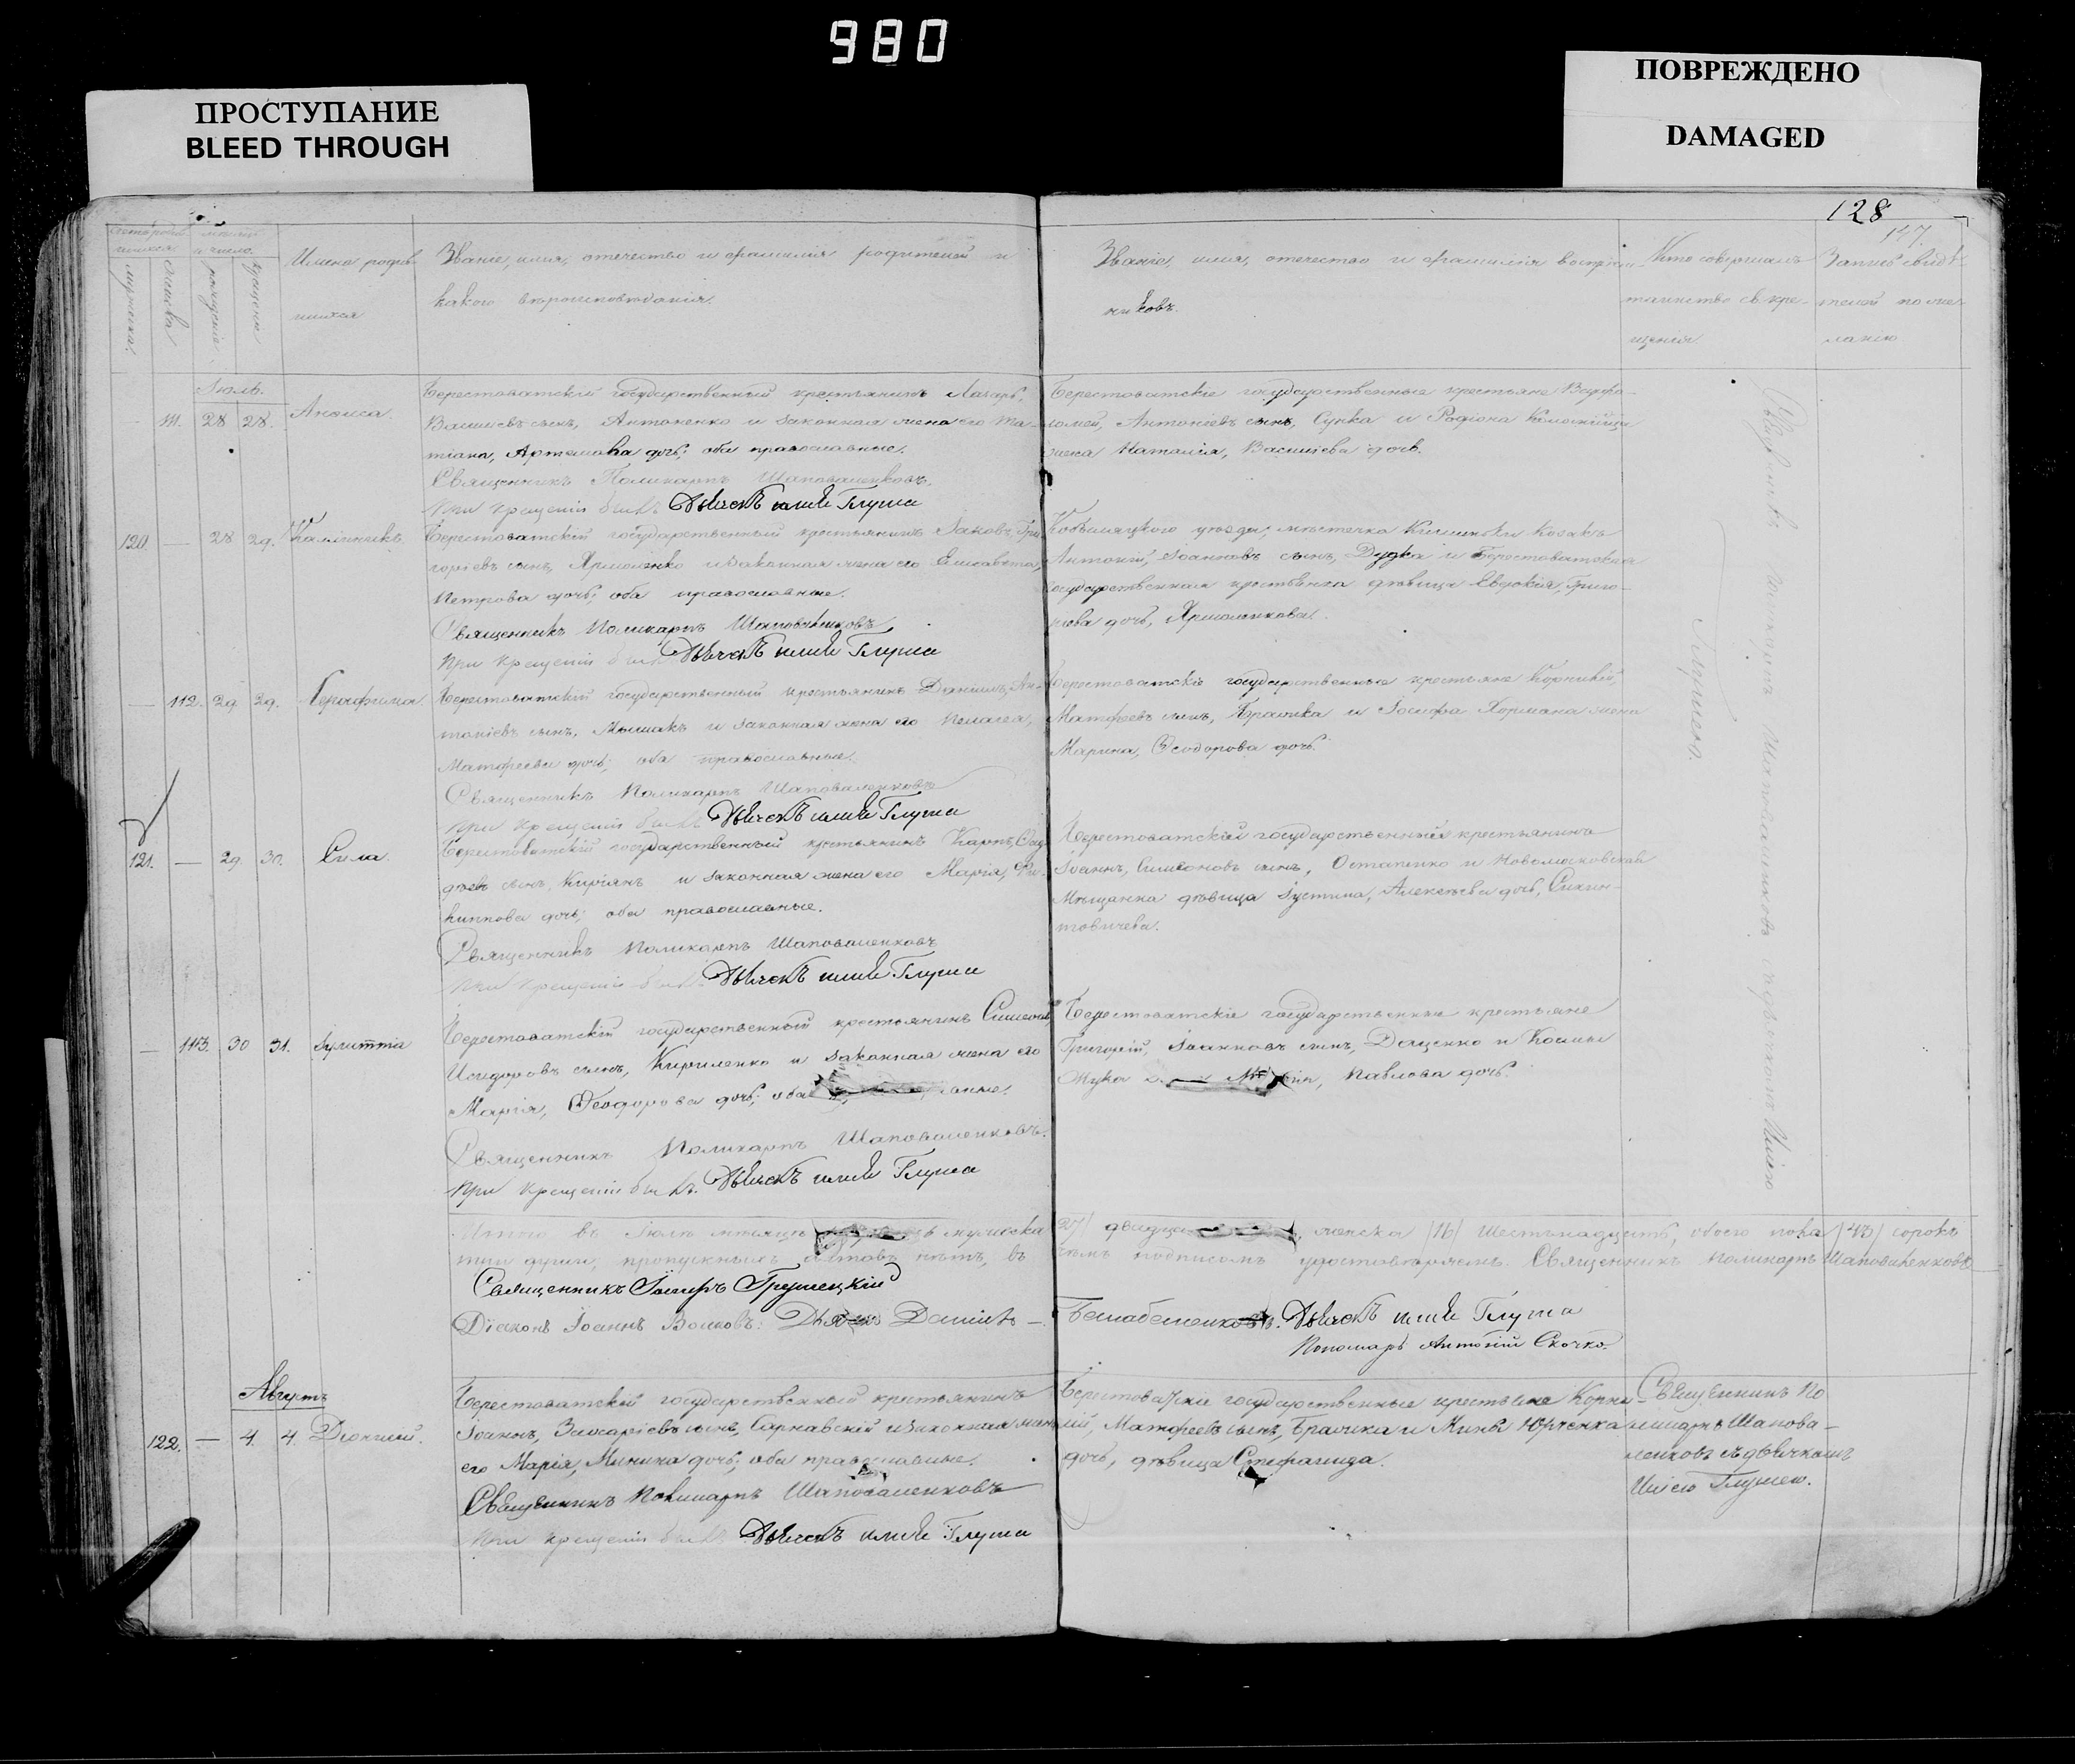 980
ПРОСТУПАНИЕ
BLEED THROUGH
ПОВРЕЖДЕНО
DAMAGED
128
147.
Имена родив-
шихся
Званіе, имя, отечество и фамилія родителей и
какого вѣроисповѣданія.
Званіе, имя, отечество и фамилія воспріем-
никовъ.
Кто совершалъ
таинство св. кре-
щенія.
Запись свидѣ-
телей по же-
ланію
Іюль.
111. 28 28. Анѳиса.
Берестоватскій государственный крестьянинъ Лазарь,
сынъ, Антоненко и законная жена его Та-
тіана, Артемова дочь; оба православные.
Священникъ Поликарпъ Шаповаленковъ.
При крещеніи былъ Дьячекъ Илія Глуша
Берестоватскіе государственные крестьяне Варфо-
ломей, Антоніевъ сынъ, Сучка и Родіона
жена Наталія, Василіева дочь.
120. — 28 29. Каллиникъ.
Берестоватскій государственный крестьянинъ Іаковъ, Гри-
горіевъ сынъ, Ярмоленко и законная жена его Елисавета,
Петрова дочь; оба православные.
Священникъ Поликарпъ Шаповаленковъ
При крещеніи былъ Дьячекъ Илія Глуша
Кобеляцкого уѣзда, мѣстечка Козакъ
Антоній, Іоанновъ сынъ, Дудка и Берестоватская
государственная крестьянка дѣвица Евдокія, Григо-
ріева дочь, Ярмоленкова.
— 112. 29 29. Серафима.
Берестоватскій государственный крестьянинъ Даніилъ, Ан-
тоніевъ сынъ, Мышакъ и законная жена его Пелагея,
Матѳеева дочь; оба православные.
Священникъ Поликарпъ Шаповаленковъ
При крещеніи былъ Дьячекъ Илія Глуша
Берестоватскіе государственные крестьяне Корнилій,
Матѳеевъ сынъ, Брачка и Іосифа жена
Марина, Ѳеодорова дочь.
121. — 29. 30. Сила.
Берестоватскій государственный крестьянинъ Карпъ,
сынъ, Киріянъ и законная жена его Марія, Фи-
липпова дочь; оба православные.
Священникъ Поликарпъ Шаповаленковъ
При крещеніи былъ Дьячекъ Илія Глуша
Берестоватскій государственный крестьянинъ
Іоаннъ, Симеоновъ сынъ, Остапенко и Новомосковская
Мѣщанка дѣвица Іустина, Алексѣева дочь,
— 113. 30 31. Іулиттія
Берестоватскій государственный крестьянинъ Симеонъ,
Исидоровъ сынъ, Кириленко и законная жена его
Марія, Ѳеодорова дочь; оба
Священникъ Поликарпъ Шаповаленковъ.
При крещеніи былъ. Дьячекъ Илія Глуша
Берестоватскіе государственные крестьяне
Григорій, Іоанновъ сынъ, Доценко и Космы
Жука Павлова дочь.
Священникъ Поликарпъ Шаповаленковъ съ дьячкомъ Иліею
Глушею.
Итого въ Іюлѣ мѣсяцѣ мужеска
27) женска /16/ шестьнадцать, обоего пола /43/ сорокъ
три души, пропускныхъ актовъ нѣтъ, въ
чемъ подписомъ удостовѣряемъ. Священникъ Поликарпъ Шаповаленковъ
Священникъ Грушецкій
Діаконъ Іоаннъ Волковъ: Даніилъ —
Дьячекъ Илія Глуша
Пономарь Антоній Скочко.
Августъ
122. — 4. 4. Діонисій.
Берестоватскій государственный крестьянинъ
Іоаннъ, Захаріевъ сынъ, Сарнавскій и законная жена
его Марія, Минина дочь; оба православные.
Священникъ Поликарпъ Шаповаленковъ
При крещеніи былъ Дьячекъ Илія Глуша
Берестоватскіе государственные крестьяне Корни-
лій, Матѳеевъ сынъ, Брачка и Мины Юрченка
дочь, дѣвица Стефанида.
Священникъ По-
ликарпъ Шапова-
ленковъ съ дьячкомъ
Иліею Глушею.